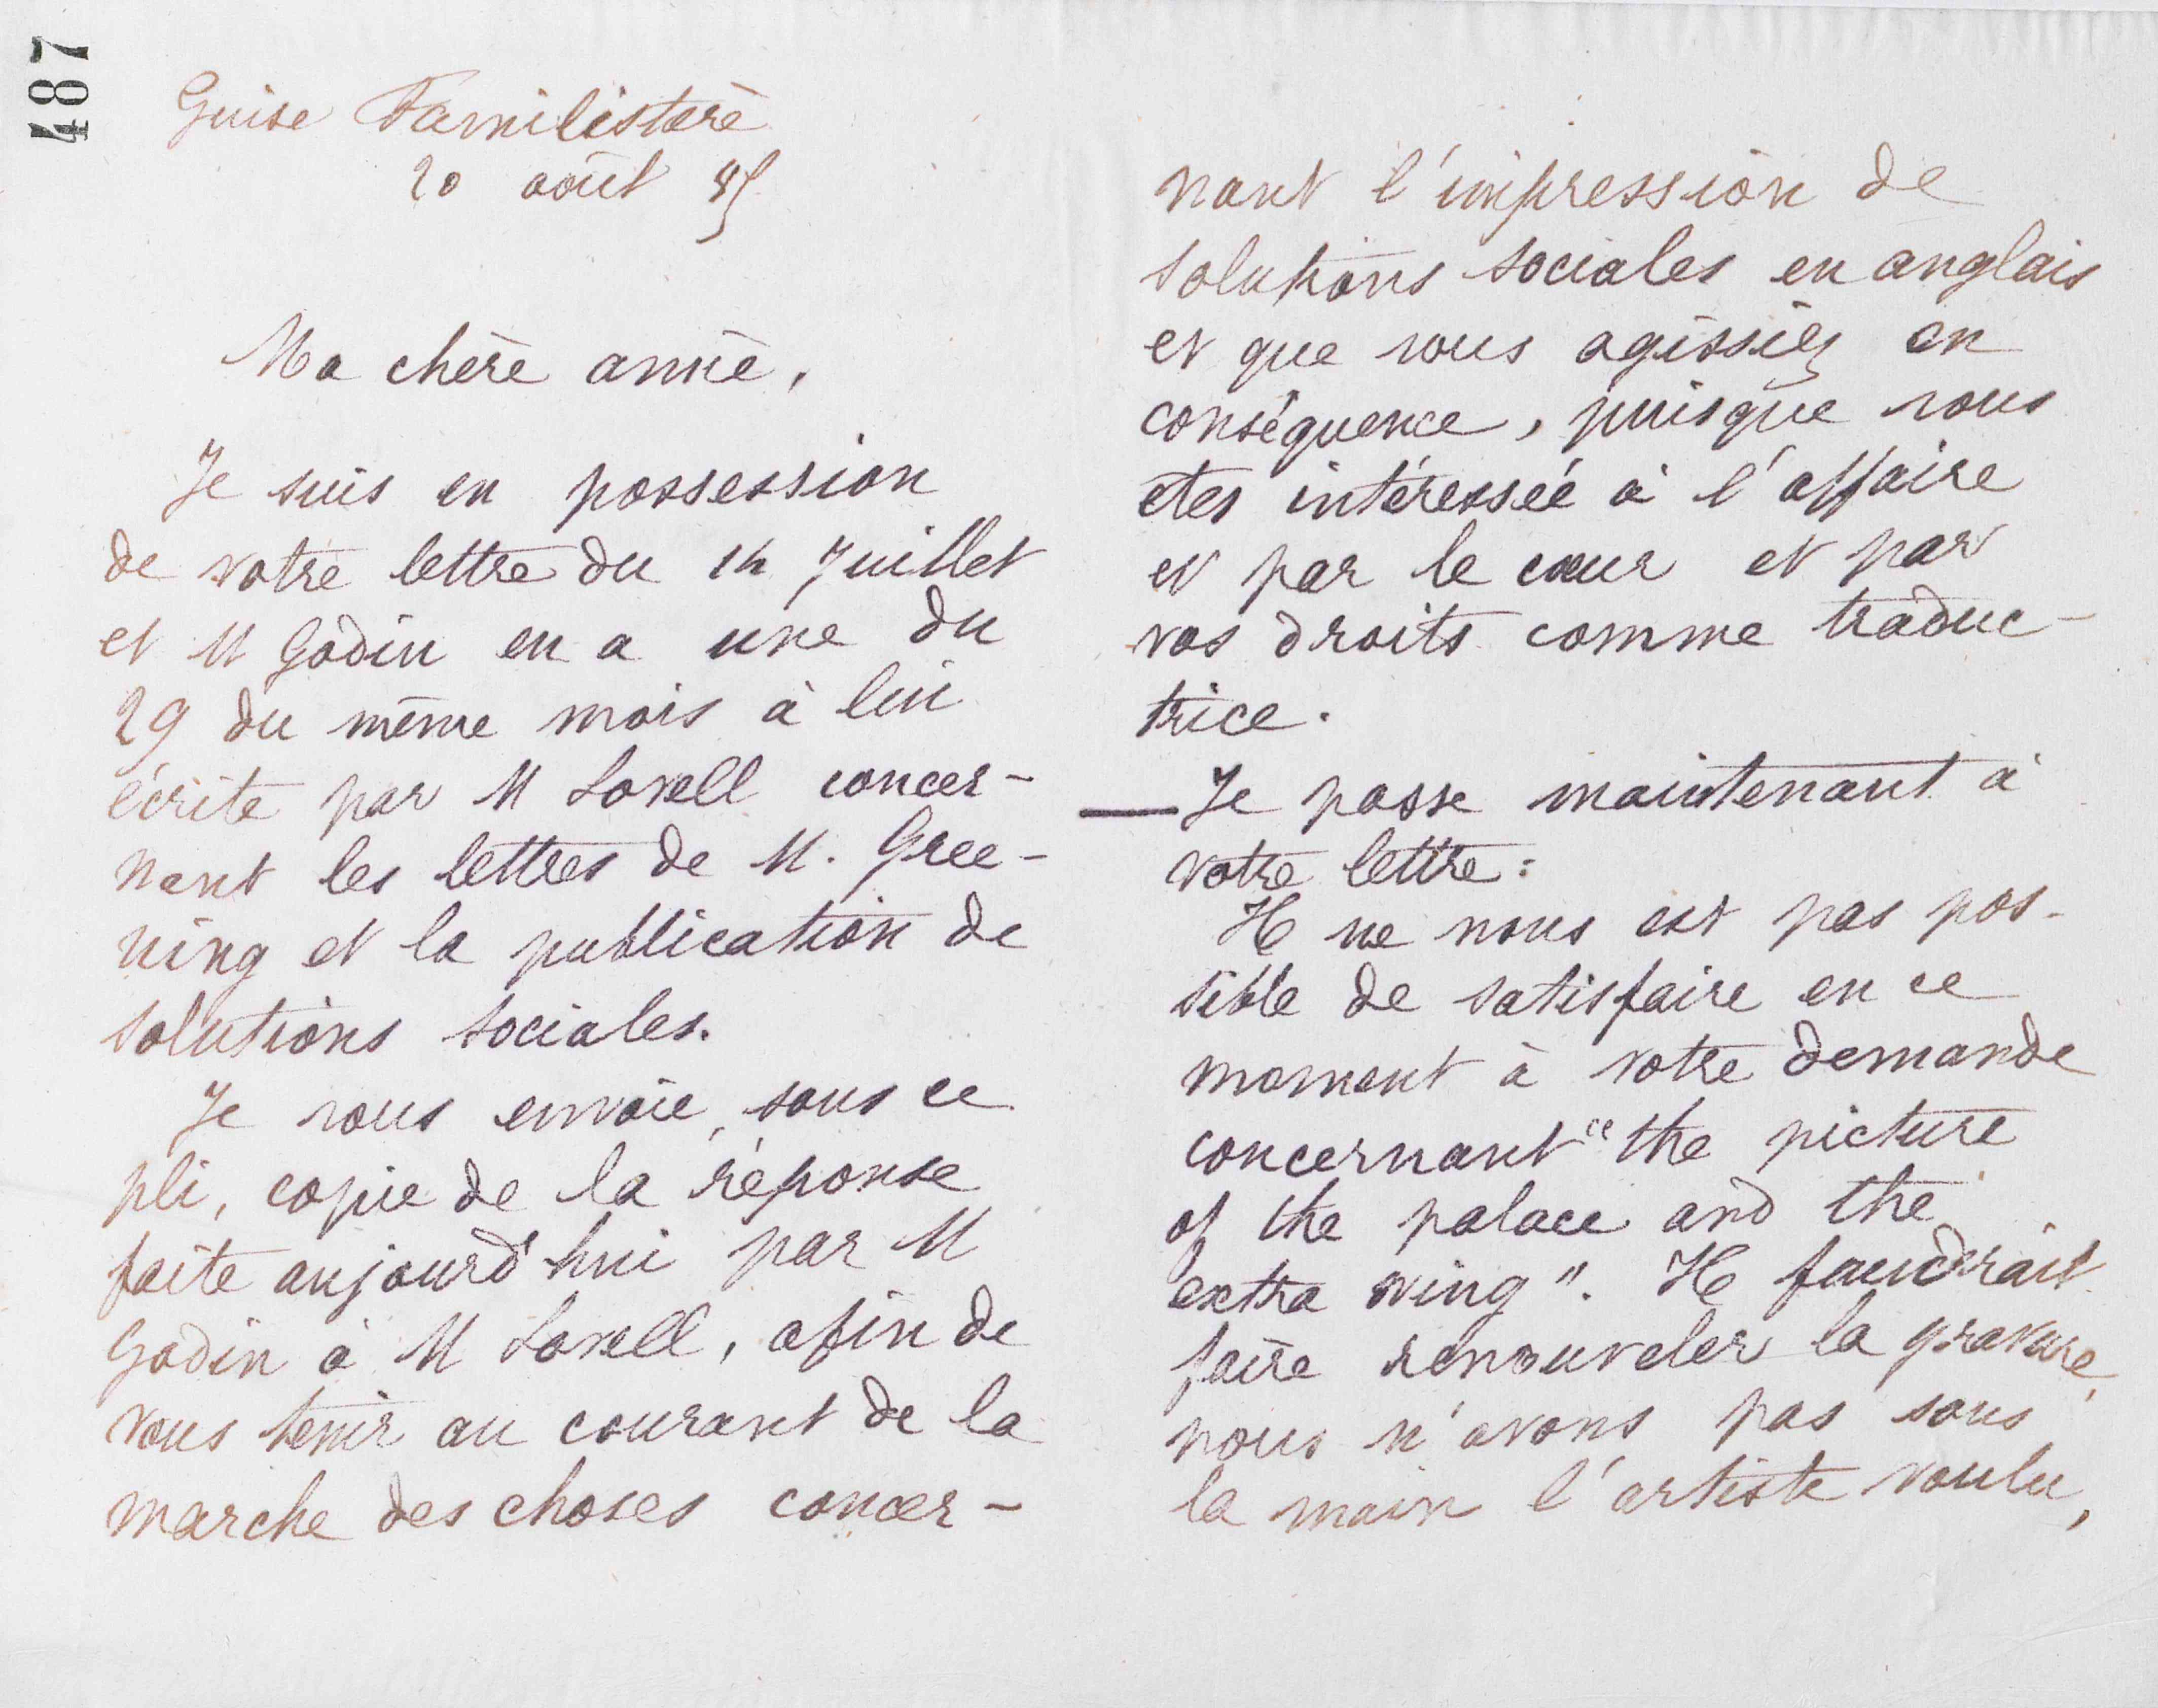 487
Guise Familistère
20 août 85
Ma chère amie,
Je suis en possession
de votre lettre du 14 Juillet
et M Godin en a une du
29 du même mois à lui
écrite par M Lovell concer-
nant les lettres de M. Gree-
ning et la publication de
Solutions sociales.
Je vous envoie, sous ce
pli, copie de la réponse
faite aujourd'hui par M
Godin à M Lovell, afin de
vous tenir au courant de la
marche des choses concer-
nant l'impression de
Solutions sociales en anglais
et que vous agissiez en
conséquence, puisque vous
etes intéressée à l'affaire
et par le cœur et par
vos droits comme traduc-
trice.
— Je passe maintenant à
votre lettre :
Il ne nous est pas pos-
sible de satisfaire en ce
moment à votre demande
concernant "the picture
of the palace and the
extra wing". Il faudrait
faire renouveler la gravure,
nous n'avons pas sous
la main l'artiste voulu,